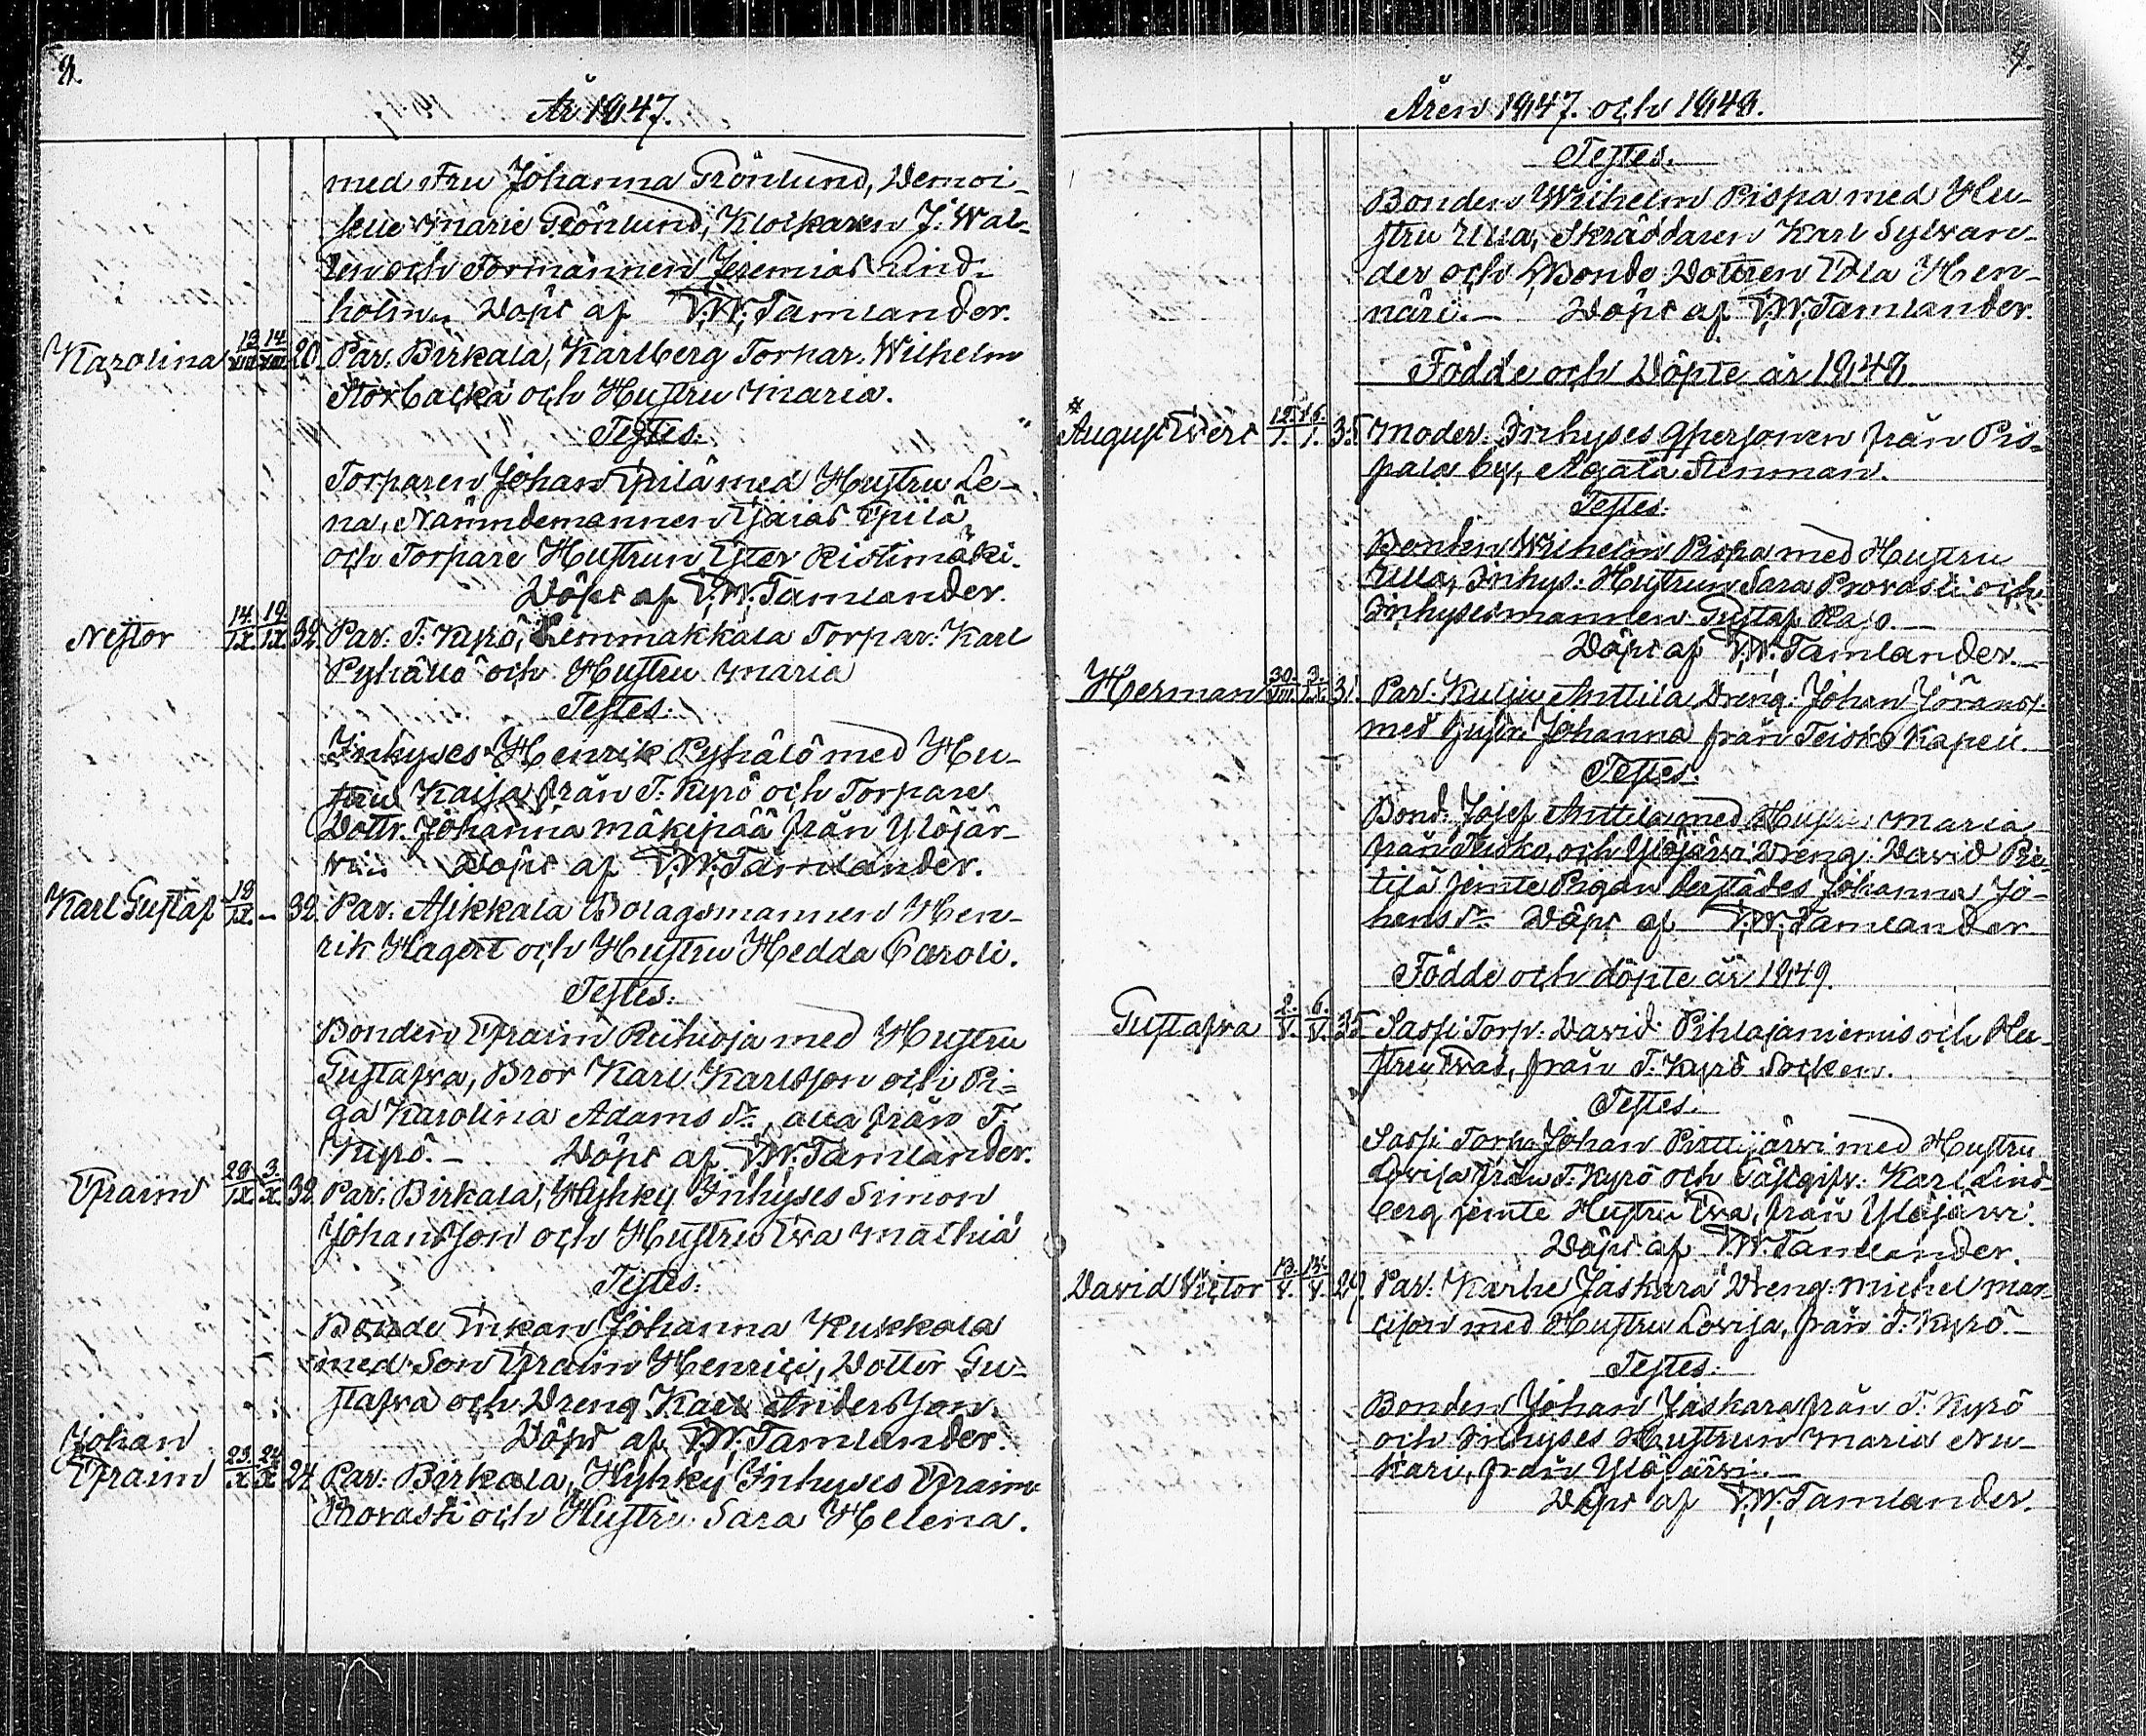 8.
År 1847.
med Fru Johanna Grönlund, Demoi-
selle Marie Grönlund, Klockaren J. Wal-
len och Formannen Jeremias Lind-
holm. Döpt af F. W. Tamlander.
Karolina 13/VIII 14/VIII 20. Par. Birkala, Karlberg Torpar. Wilhelm
Storbacka och Hustru Maria.
Testes:
Torparen Johan Epilä med Hustru Le-
na, Nämndemannen Esaias Epilä
och Torpare Hustrun Ester Ristimäki.
Döpt af F. W. Tamlander.
Nestor 14./IX. 19/IX. 32. Par. T: Kyrö, Lemmakkala Torpar: Karl
Pyhältö och Hustru Maria
Testes:
Inhyses Henrik Pyhältö med Hu-
stru Kaisa från T. Kyrö och Torpare
Dottr. Johanna Mäkipää från Ylöjär-
vi. Döpt af F. W. Tamlander.
Karl Gustaf 18/IX. – 32. Par. Asikkala Bolagsmannen Hen-
rik Hagert och Hustru Hedda Caroli.
Testes:
Bonden Efraim Riihioja med Hustru
Gustafva, Bror Karl Karlsson och Pi-
ga Karolina Adams dr, alla från T.
Kyrö. – Döpt af F. W. Tamlander.
Efraim 29/IX 3./X. 32. Par. Birkala, Hyhky Inhyses Simon
Johansson och Hustru Eva Mathia
Testes:
Bonde Enkan Johanna Kukkola
med Son Efraim Henrici, Dotter Gu-
stafva och Dreng Karl Andersson.
Döpt af F. W. Tamlander.
Johan
Efraim 23./X 24/X 24 Par. Birkala, Hyhky Inhyses Efraim
Provasti och Hustru Sara Helena.
9.
Åren 1847. och 1848.
Testes.
Bonden Wilhelm Pispa med Hu-
stru Ulla, Skräddaren Karl Sylvan-
der och Bonde Dottren Edla Hen-
näri. – Döpt af F. W. Tamlander.
Födde och Döpte år 1848.
August Evert 12./1. 16./1. 35. Moder: Inhyses qpersonen från Pis-
pala by, Agata Stenman.
Testes:
Bonden Wilhelm Pispa med Hustru
Ulla, Inhys: Hustrun Sara Provasti och
Inhysesmannen Gustaf Rajo. –
Döpt af F. W. Tamlander. –
Herman 30./VIII 3./IX. 31. Par. Kulju Anttila Dreng. Johan Jöranss.
med Hustr. Johanna från Teisko Kapell.
Testes:
Bond. Josef Anttila med Hustru Maria
från Teisko, och Ylöjärvi Dreng. David Pie-
tilä jemte Pigan derstädes Johanna Jo-
hans dr Döpt af F. W. Tamlander
Födde och döpte år 1849.
Gustafva 2./V. 6./V. 35 Sassi Torp: David Pihlajaniemis och Hu-
stru Evas, från T. Kyrö Socken.
Testes.
Sassi Torp. Johan Pirttijärvi med Hustru
Lovisa från T. Kyrö och Gästgifv: Karl Lind-
berg jemte Hustru Eva, från Ylöjärvi.
Döpt af F. W. Tamlander
David Victor 13./V. 13./V. 27. Par: Karhe Jaskara Dreng: Michel Mar-
cisson med Hustru Lovisa, från T. Kyrö. –
Testes:
Bonden Johan Jaskara från T. Kyrö
och Inhyses Hustrun Maria Nu-
kari, från Ylöjärvi. –
Döpt af F. W. Tamlander.